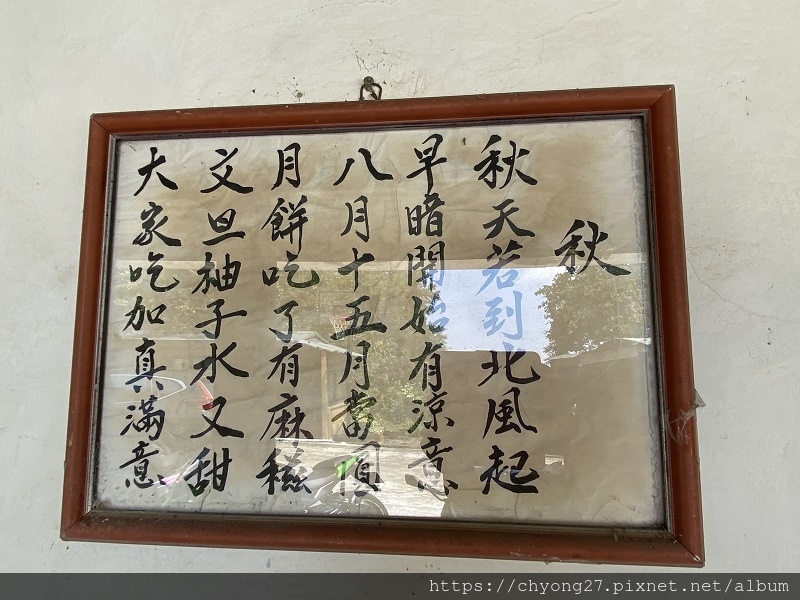 秋
秋天若到北風起
早暗開始有涼意
八月十五月當圓
月餅吃了有麻糍
文旦柚子水又甜
大家吃加真滿意
https://chyong27.pixnet.net/album